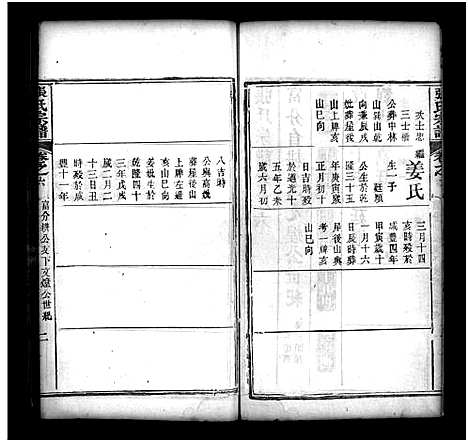 張氏宗譜
卷之
次士忠
三士禮
公葬中林
山巽山乾
向兼辰戌
妣葬屋後
山上辰亥
山巳向
繼姜氏
生一子
廷順
公生於乾
隆三十五
年庚寅歲
正月初十
日吉時歿
於道光十
五年乙未
歲六月初
三月十四
亥時歿於
咸豐四年
甲寅歲十
一月十六
日辰時葬
屋後山與
考一亥
山巳向
八吉時
公與高妣
葬屋後山
上辰左邊
亥山巳向
姜妣生於
乾隆四十
三年戊戌
歲二月二
十三日丑
時歿於咸
豐十一年
富分耕公支下文煌公世紀
二
張氏宗譜
卷之